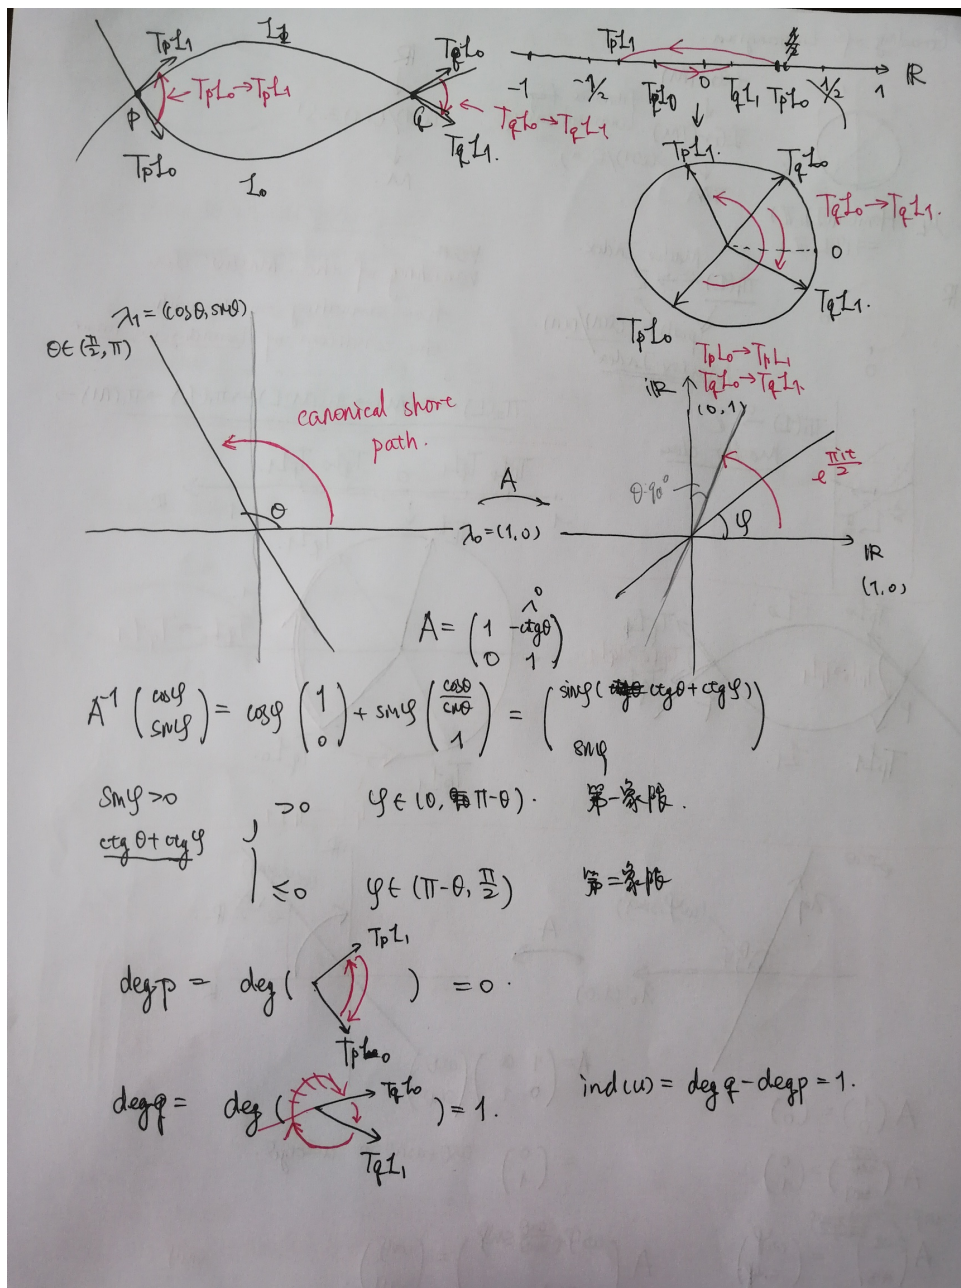 TpL1
L1
TqL0
TpL1
TpL0→TpL1
p
q
TqL0→TqL1
TpL0
TqL1.
L0
-1
-1/2
TpL0
0
TqL1
TpL0
1/2
1
ℝ
TpL1.
TqL0
TqL0→TqL1.
0
TqL1.
TpL0
TpL0→TpL1
TqL0→TqL1.
λ1=(cosθ,sinθ)
θ∈(π/2,π)
canonical short
path.
θ
λ0=(1,0)
A
iℝ
(0,1)
θ-90°
e^{πit/2}
φ
ℝ
(1,0)
A = (1 -ctgθ; 0 1)
A^{-1} (cosφ; sinφ) = cosφ (1; 0) + sinφ (cosθ/sinθ; 1) = (sinφ(ctgθ+ctgφ); sinφ)
sinφ>0
ctgθ+ctgφ
>0 φ∈(0,π-θ). 第一象限.
≤0 φ∈(π-θ,π/2) 第二象限
TpL1
deg p = deg( ) = 0.
TpL0
TqL0
deg q = deg( ) = 1.
TqL1
ind(u) = deg q - deg p = 1.